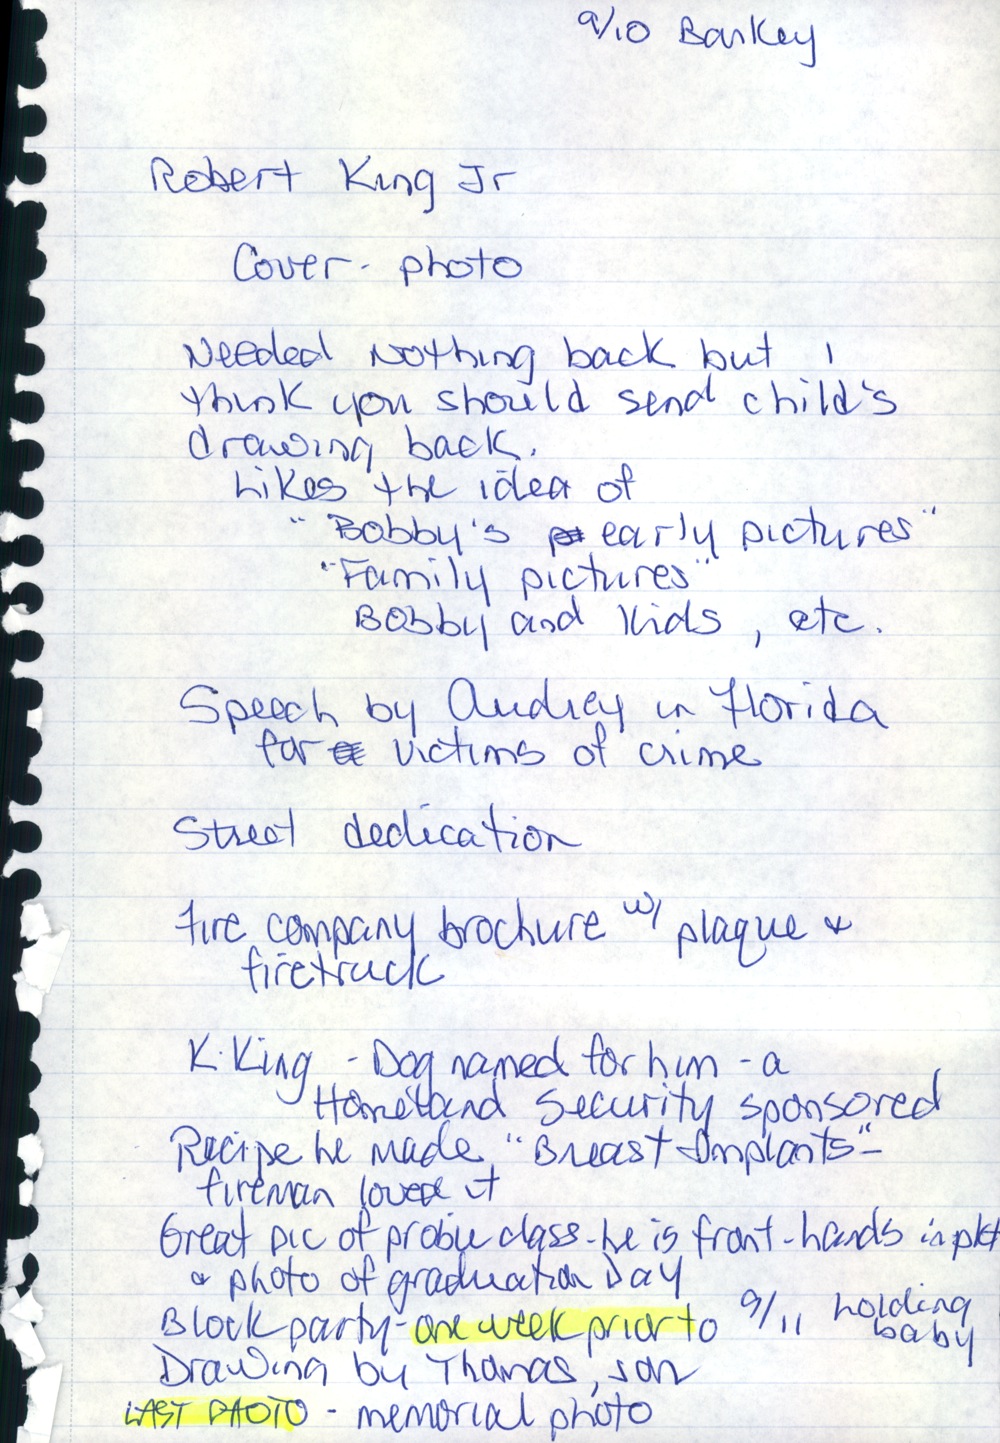 9/10 Bankey
Robert King Jr
Cover - photo
Needed Nothing back but I
think you should send child's
drawing back.
Likes the idea of
"Bobby's early pictures"
"Family pictures"
Bobby and Kids, etc.
Speech by Audrey in Florida
for victims of crime
Street dedication
Fire company brochure w/ plaque &
firetruck
K. King - Dog named for him - a
Homeland Security sponsored
Recipe he made "Breast Implants" -
fireman loved it
Great pic of probie class - he is front - hands in pkt
& photo of graduation Day
Block party - one week prior to 9/11 holding
baby
Drawing by Thomas, son
LAST PHOTO - memorial photo